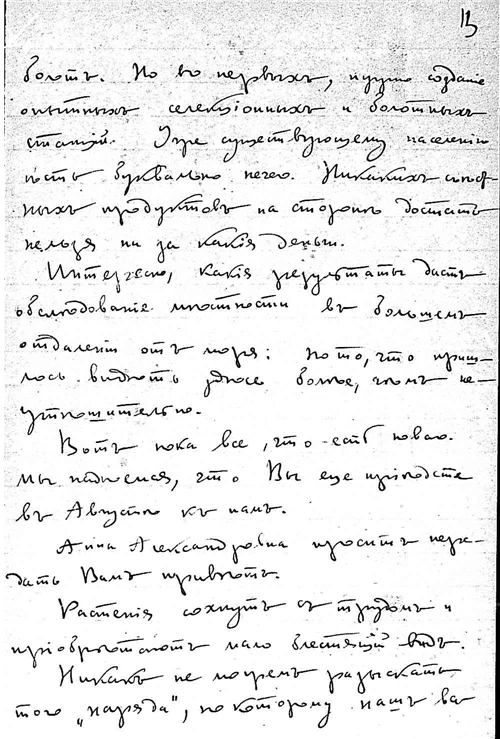 13
болотъ. Но во первыхъ, нужно созданіе
опытныхъ селекціонныхъ и болотныхъ
станцій. Здѣсь существующему населенію
ѣсть буквально нечего. Никакихъ съѣст-
ныхъ продуктовъ на сторонѣ достать
нельзя ни за какія деньги.
Интересно, какія результаты дастъ
обслѣдованіе мѣстности въ большемъ
отдаленіи отъ моря; но то, что приш-
лось видѣть здѣсь болѣе, чѣмъ не-
утѣшительно.
Вотъ пока все, что есть новаго.
Мы надѣемся, что Вы еще пріѣдете
въ Августѣ къ намъ.
Анна Александровна проситъ пере-
дать Вамъ привѣтъ.
Растенія сохнутъ съ трудомъ и
пріобрѣтаютъ мало блестящій видъ.
Никакъ не можемъ разыскать
того „наряда", по которому нашъ ва